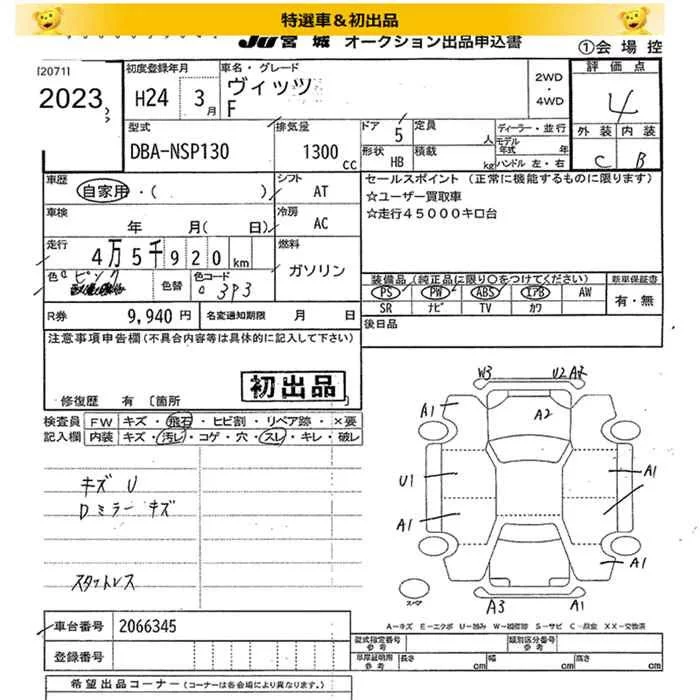 特選車＆初出品
JU宮城 オークション出品申込書
①会場控
[2071]
2023
初度登録年月
H24 3月
車名・グレード
ヴィッツ
F
2WD
・
4WD
評価点
4
外装 内装
C B
型式
DBA-NSP130
排気量
1300cc
ドア 5
定員 人
形状 HB
積載 kg
ディーラー・並行
モデル年式 年
ハンドル 左・右
車歴
自家用・( )
シフト
AT
車検
年 月( 日)
冷房
AC
走行
4万5千920km
燃料
ガソリン
色 ピンク
色替
色コード
3P3
セールスポイント (正常に機能するものに限ります)
☆ユーザー買取車
☆走行45000キロ台
装備品(純正品に限り○をつけてください)
新車保証書
PS PW ABS エアB AW
SR ナビ TV カワ
有・無
R券 9,940円
名変通知期限 月 日
後日品
注意事項申告欄(不具合内容等は具体的に記入して下さい)
初出品
修復歴 有 〔箇所 〕
検査員記入欄
FW キズ・飛石・ヒビ割・リペア跡・×要
内装 キズ・汚レ・コゲ・穴・スレ・キレ・破レ
キズ U
Dミラー キズ
スタットレス
W3 U2 A2
A1 A2
U1 A1
A1
A1
A3 A1
スペア
A－キズ E－エクボ U－凹み W－補修跡 S－サビ C－腐食 XX－交換済
車台番号 2066345
登録番号
型式指定番号 参考
類別区分番号 参考
車庫証明用 参考 長さ cm 幅 cm 高さ cm
希望出品コーナー (コーナーは各会場により異なります。)